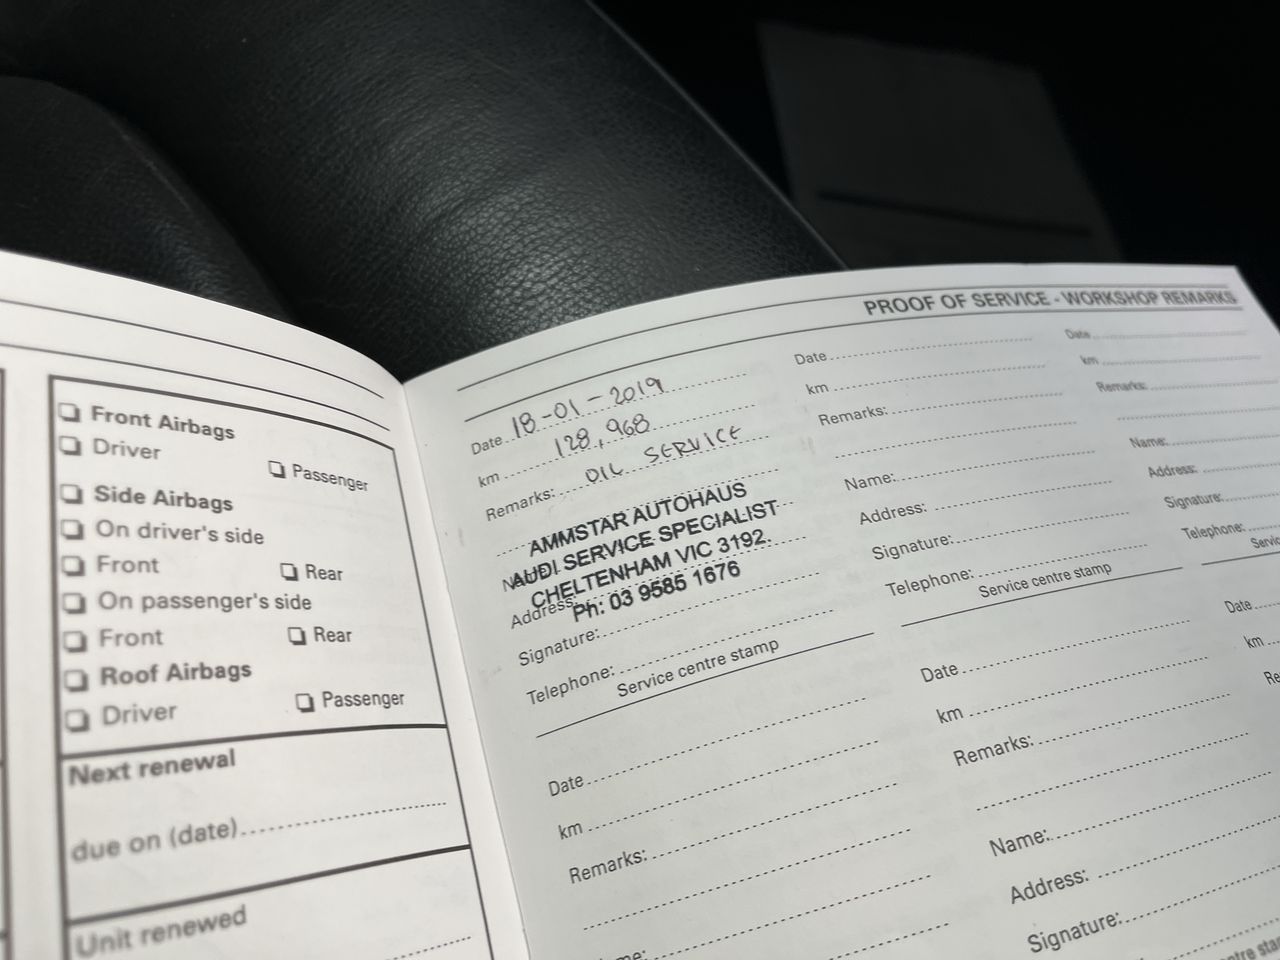 Front Airbags
Driver
Passenger
Side Airbags
On driver's side
Front
Rear
On passenger's side
Front
Rear
Roof Airbags
Driver
Passenger
Next renewal
due on (date)
Unit renewed
PROOF OF SERVICE - WORKSHOP REMARKS
Date 18-01-2019
km 128,968
Remarks: OIL SERVICE
AMMSTAR AUTOHAUS
AUDI SERVICE SPECIALIST
CHELTENHAM VIC 3192.
Address: Ph: 03 9585 1676
Signature:
Telephone:
Service centre stamp
Date
km
Remarks:
Name:
Address:
Signature:
Telephone:
Service centre stamp
Date
km
Remarks:
Name:
Address:
Signature:
Telephone:
Date
km
Remarks:
Date
km
Remarks:
Name:
Address:
Signature:
Date
km